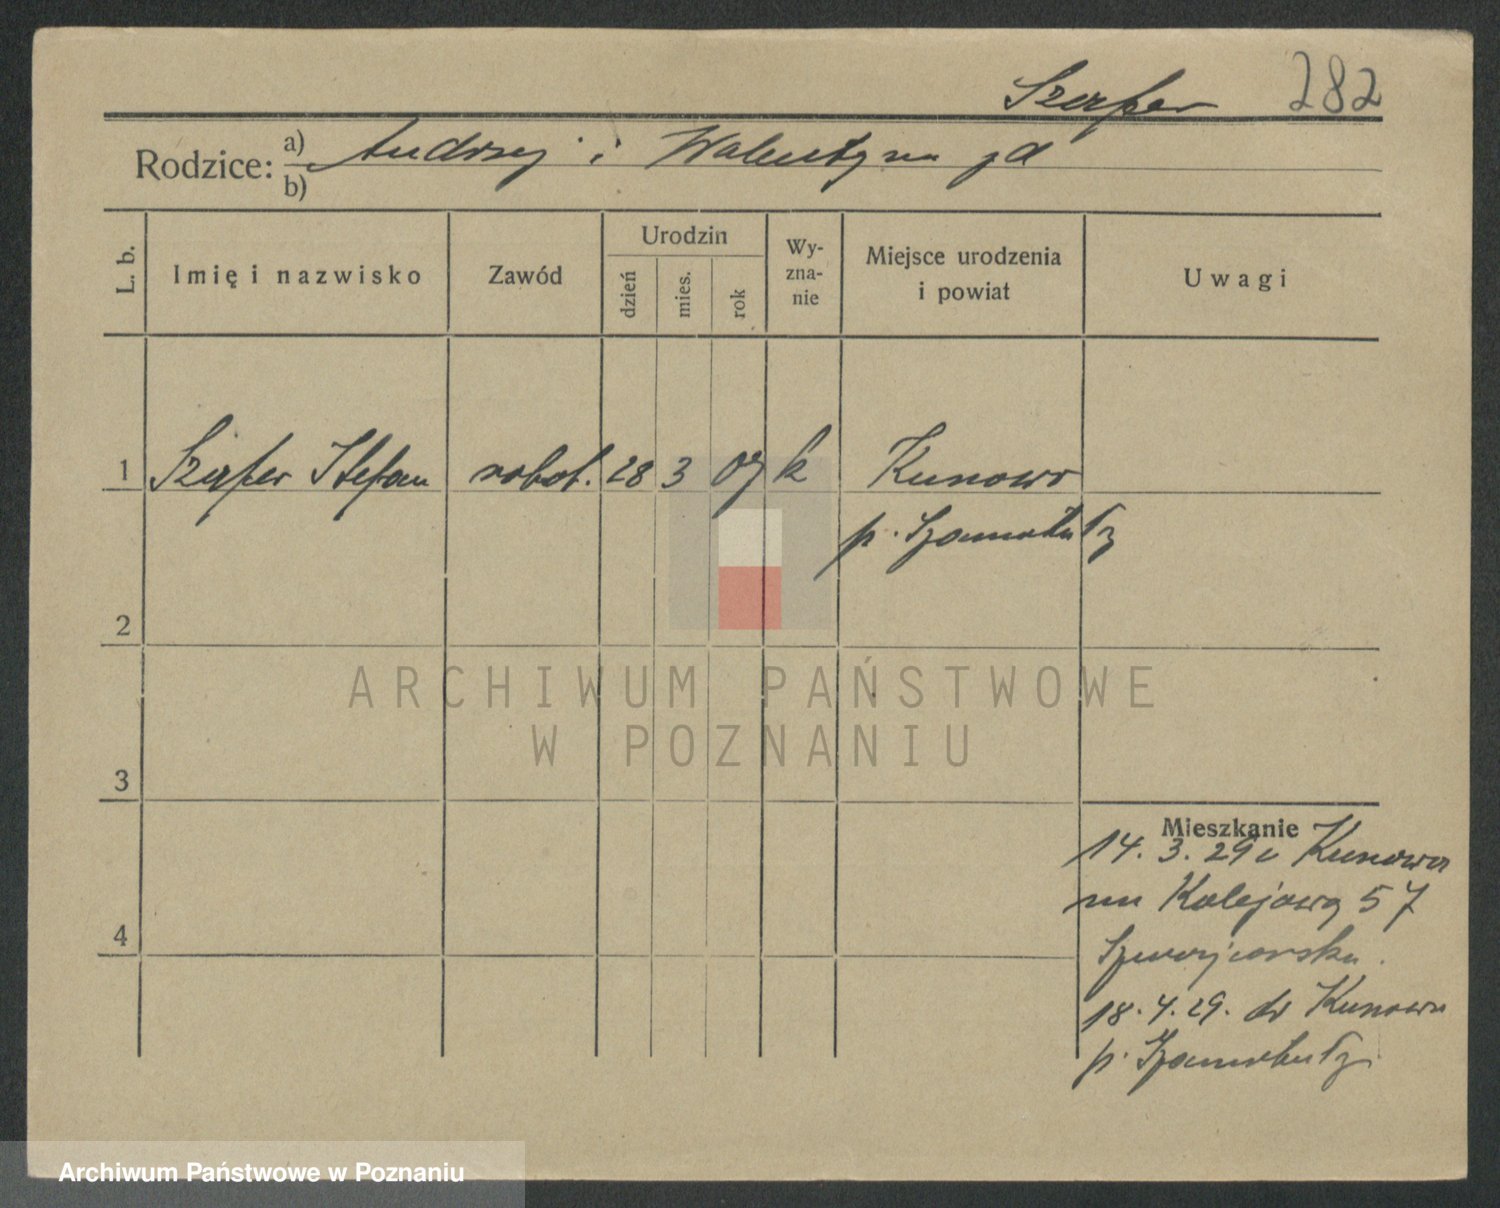 Szerfer 282
Rodzice: a) Andrzej i Walentyna
b)
L. b. Imię i nazwisko Zawód Urodzin dzień mies. rok Wy-zna-nie Miejsce urodzenia i powiat Uwagi
1 Szerfer Stefan robot. 28 3 07 k Kunowo
p. Szamotuły
2
ARCHIWUM PAŃSTWOWE
W POZNANIU
3
Mieszkanie
14. 3. 29 z Kunowa
na Kolejową 57
4
18. 4. 29. do Kunowa
p. Szamotuły
Archiwum Państwowe w Poznaniu